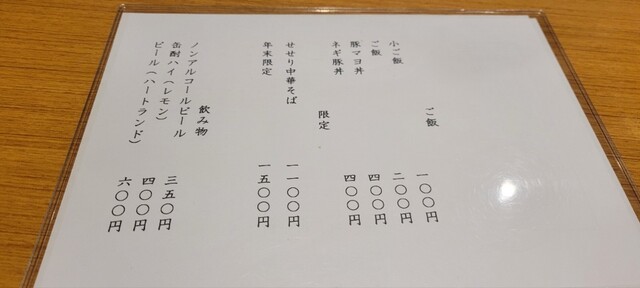 ご飯
小ご飯 一〇〇円
ご飯 二〇〇円
豚マヨ丼 四〇〇円
ネギ豚丼 四〇〇円
限定
せせり中華そば 一一〇〇円
年末限定 一五〇〇円
飲み物
ノンアルコールビール 三五〇円
缶酎ハイ（レモン） 四〇〇円
ビール（ハートランド） 六〇〇円